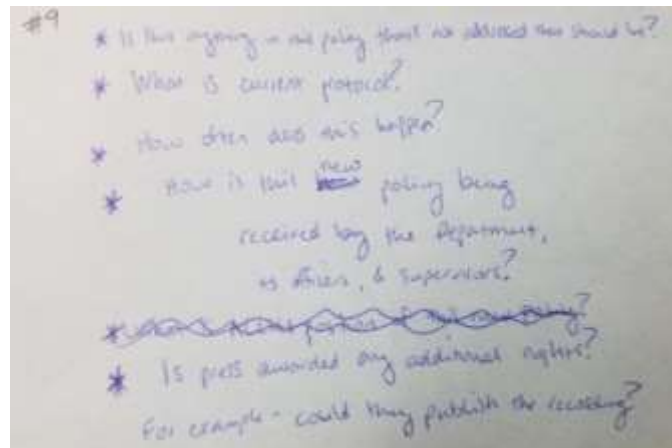 #9
* Is there anything in this policy that's not addressed that should be?
* What is current protocol?
* How often does this happen?
* How is this new policy being
received by the Department,
its officers, & supervisors?
* policy?
* Is press awarded any additional rights?
For example - could they publish the recording?